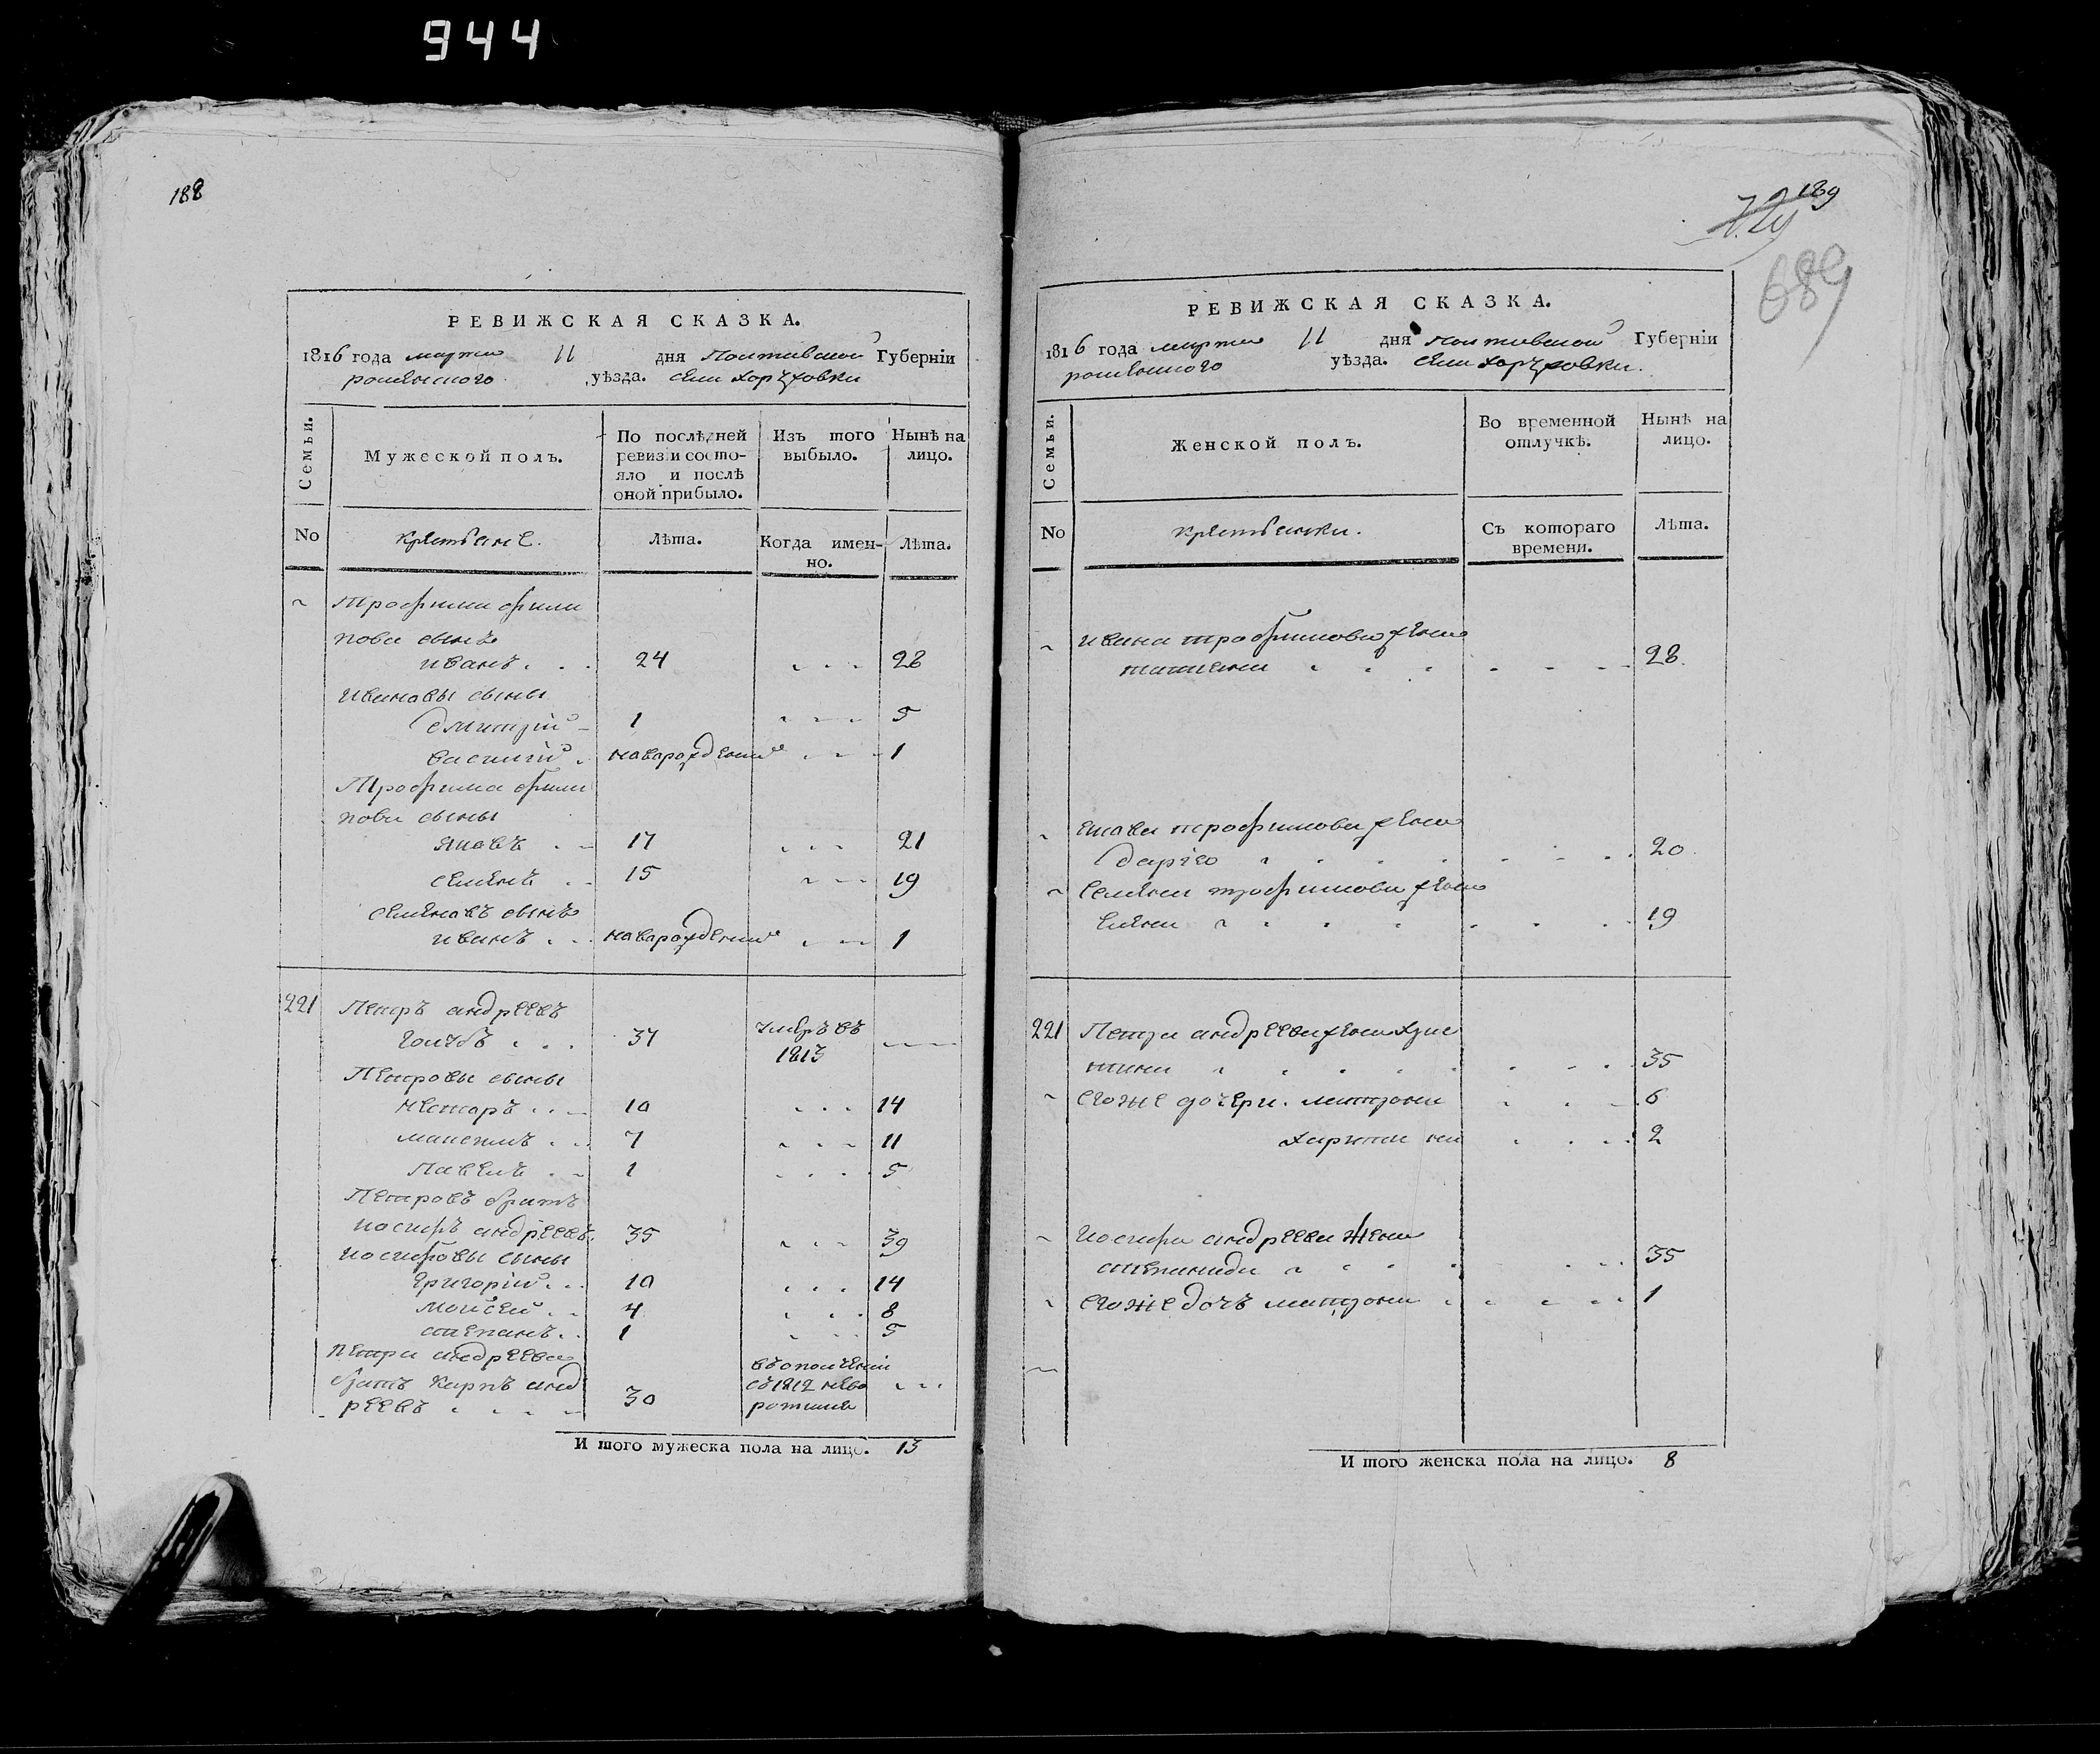 944
188
РЕВИЖСКАЯ СКАЗКА.
1816 года марта 11 дня Полтавской Губерніи
роменского уѣзда. села
Семьи.
Мужеской полъ.
По послѣдней ревизіи состо-
яло и послѣ
оной прибыло.
Изъ того
выбыло.
Нынѣ на
лицо.
No
крестьяне.
лѣта.
Когда имен-
но.
лѣта.
Трофима фили
пова сынъ
иванъ 24 28
ивановы сыны
дмитрій 1 5
василій новорожденный 1
Трофима фили
пова сыны
яковъ 17 21
семенъ 15 19
семеновъ сынъ
иванъ новорожденный 1
221 Петръ андреевъ
голубъ 37 умеръ въ
1813
Петровы сыны
нестеръ 10 14
максимъ 7 11
павелъ 1 5
Петровъ братъ
иосифъ андреевъ 35 39
иосифовы сыны
григорій 10 14
мойсей 4 8
степанъ 1 5
петра андреева
братъ карпъ анд
реевъ 30
въ ополченіи
съ 1812
И того мужеска пола на лицо. 13
189
689
РЕВИЖСКАЯ СКАЗКА.
1816 года марта 11 дня Полтавской Губерніи
роменского уѣзда. села
Семьи.
Женской полъ.
Во временной
отлучкѣ.
Нынѣ на
лицо.
No
крестьянки.
Съ котораго
времени.
лѣта.
ивана трофимова жена
татьяна 28
якова трофимова жена
дарія 20
семена трофимова жена
елена 19
221 Петра андреева жена хрис
тина 35
его же дочери. матрона 6
2
иосифа андреева жена
степанида 35
его же дочь матрона 1
И того женска пола на лицо. 8